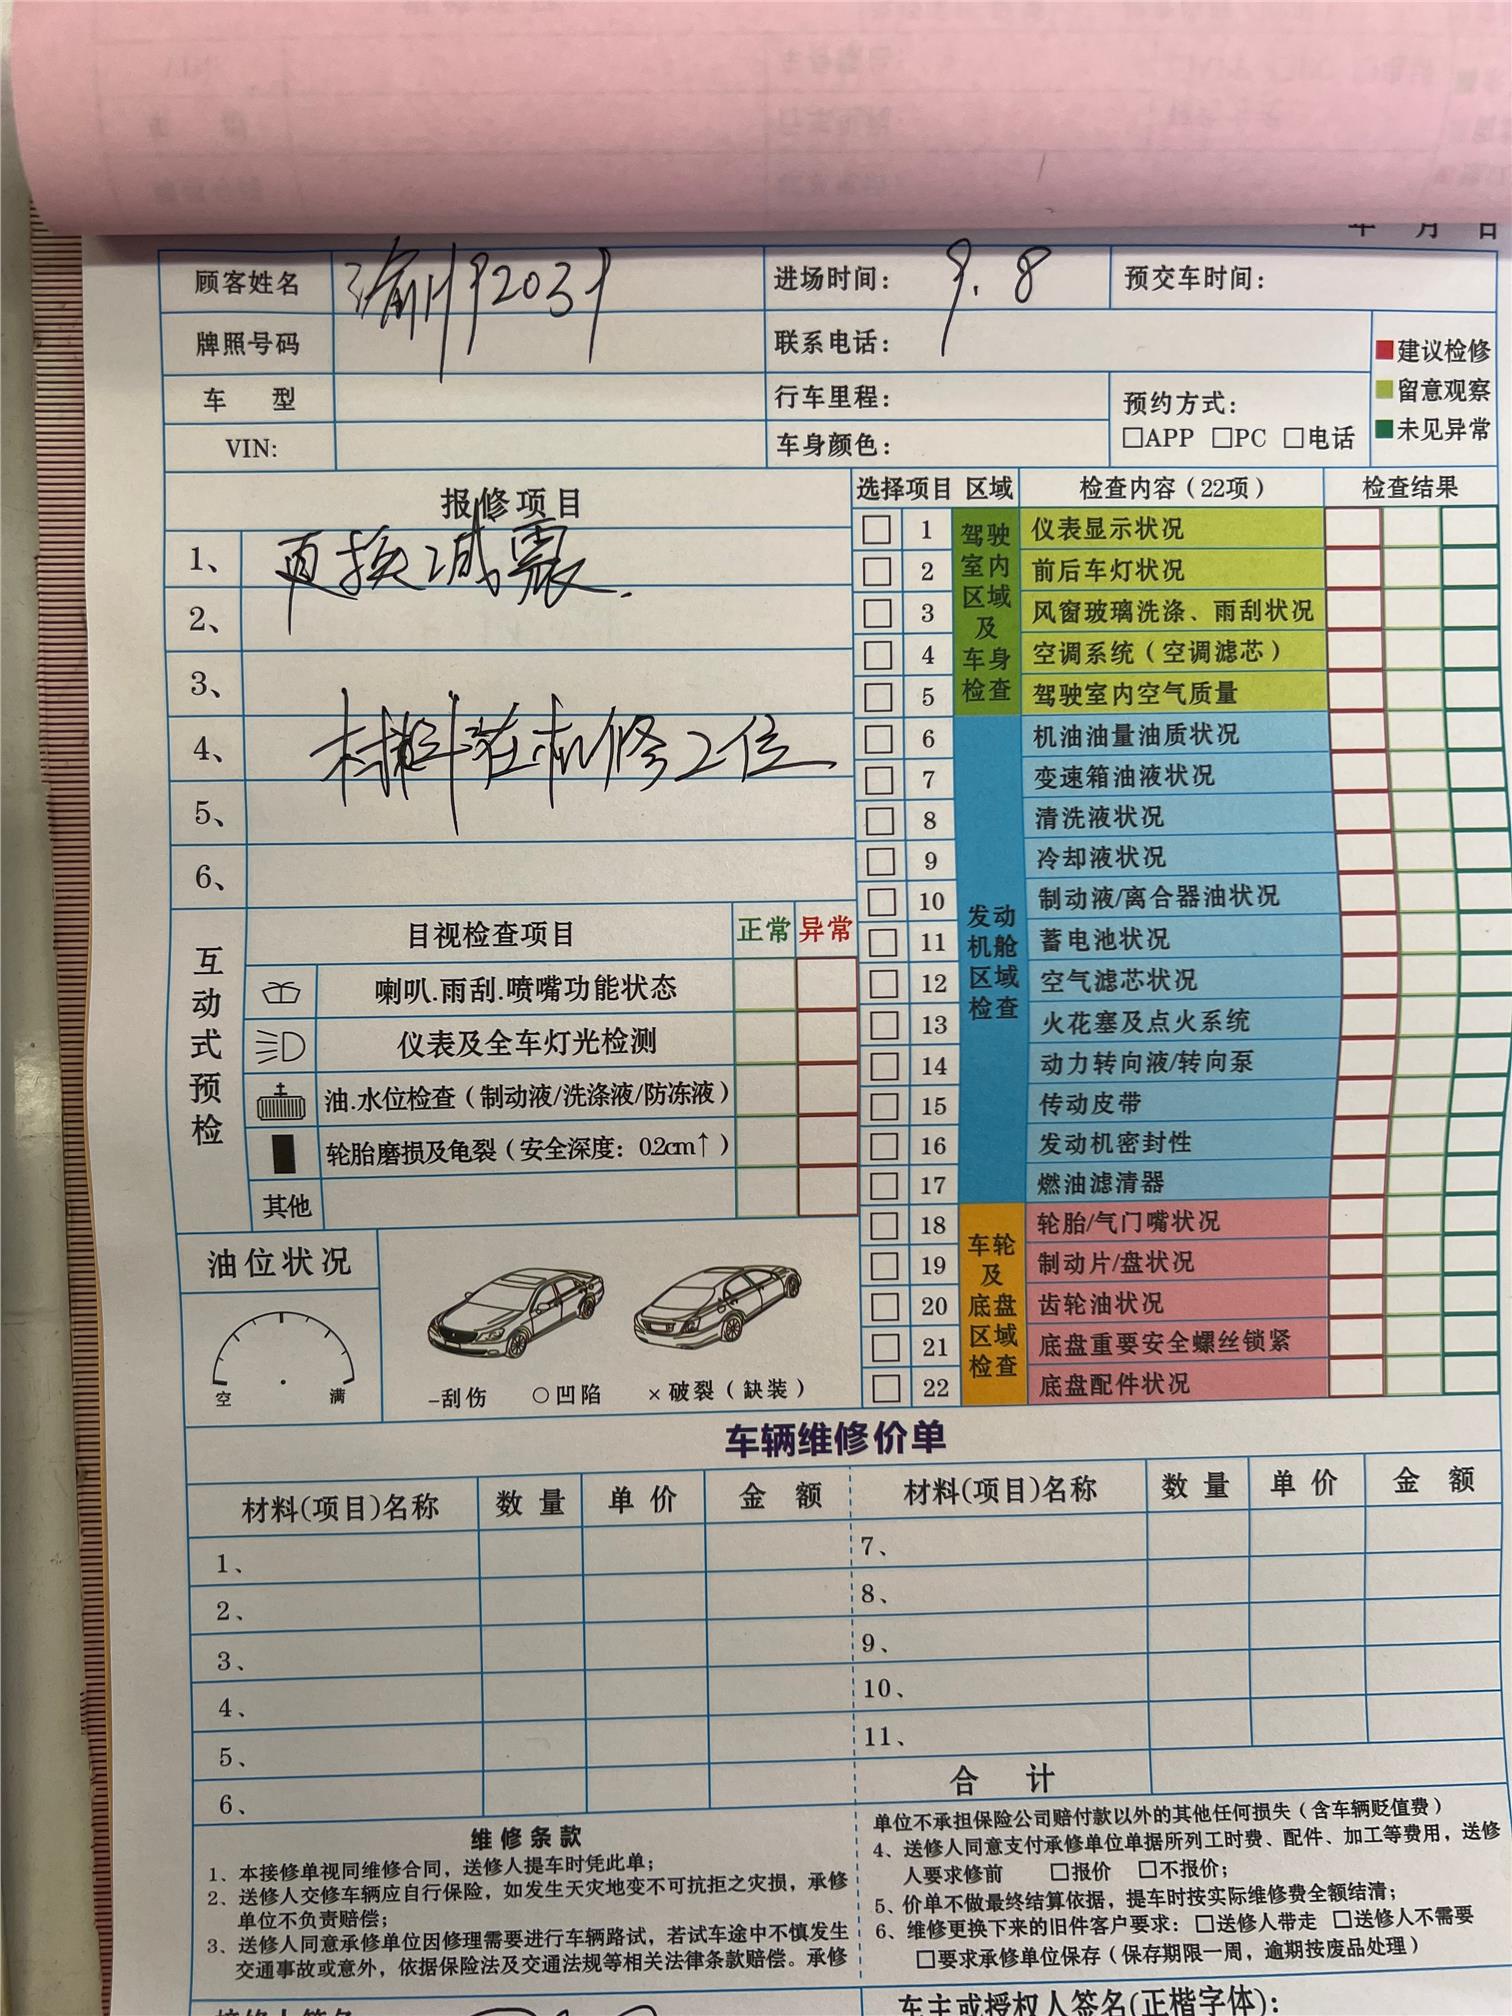 年 月 日
顾客姓名
进场时间： 9.8
预交车时间：
牌照号码
联系电话：
建议检修
留意观察
未见异常
车 型
行车里程：
预约方式：
□APP □PC □电话
VIN:
车身颜色：
报修项目
1、 再换减震.
2、
3、
4、 材料在机修2位
5、
6、
选择项目 区域 检查内容（22项） 检查结果
驾驶室内区域及车身检查
□ 1 仪表显示状况
□ 2 前后车灯状况
□ 3 风窗玻璃洗涤、雨刮状况
□ 4 空调系统（空调滤芯）
□ 5 驾驶室内空气质量
发动机舱区域检查
□ 6 机油油量油质状况
□ 7 变速箱油液状况
□ 8 清洗液状况
□ 9 冷却液状况
□ 10 制动液/离合器油状况
□ 11 蓄电池状况
□ 12 空气滤芯状况
□ 13 火花塞及点火系统
□ 14 动力转向液/转向泵
□ 15 传动皮带
□ 16 发动机密封性
□ 17 燃油滤清器
车轮及底盘区域检查
□ 18 轮胎/气门嘴状况
□ 19 制动片/盘状况
□ 20 齿轮油状况
□ 21 底盘重要安全螺丝锁紧
□ 22 底盘配件状况
互动式预检
目视检查项目 正常 异常
喇叭.雨刮.喷嘴功能状态
仪表及全车灯光检测
油.水位检查（制动液/洗涤液/防冻液）
轮胎磨损及龟裂（安全深度：0.2cm↑）
其他
油位状况
空 满
-刮伤 ○凹陷 ×破裂（缺装）
车辆维修价单
材料(项目)名称 数量 单价 金额 材料(项目)名称 数量 单价 金额
1、 7、
2、 8、
3、 9、
4、 10、
5、 11、
6、 合计
维修条款
1、本接修单视同维修合同，送修人提车时凭此单；
2、送修人交修车辆应自行保险，如发生天灾地变不可抗拒之灾损，承修
单位不负责赔偿；
3、送修人同意承修单位因修理需要进行车辆路试，若试车途中不慎发生
交通事故或意外，依据保险法及交通法规等相关法律条款赔偿。承修
单位不承担保险公司赔付款以外的其他任何损失（含车辆贬值费）
4、送修人同意支付承修单位单据所列工时费、配件、加工等费用，送修
人要求修前 □报价 □不报价；
5、价单不做最终结算依据，提车时按实际维修费全额结清；
6、维修更换下来的旧件客户要求：□送修人带走 □送修人不需要
□要求承修单位保存（保存期限一周，逾期按废品处理）
车主或授权人签名(正楷字体)：